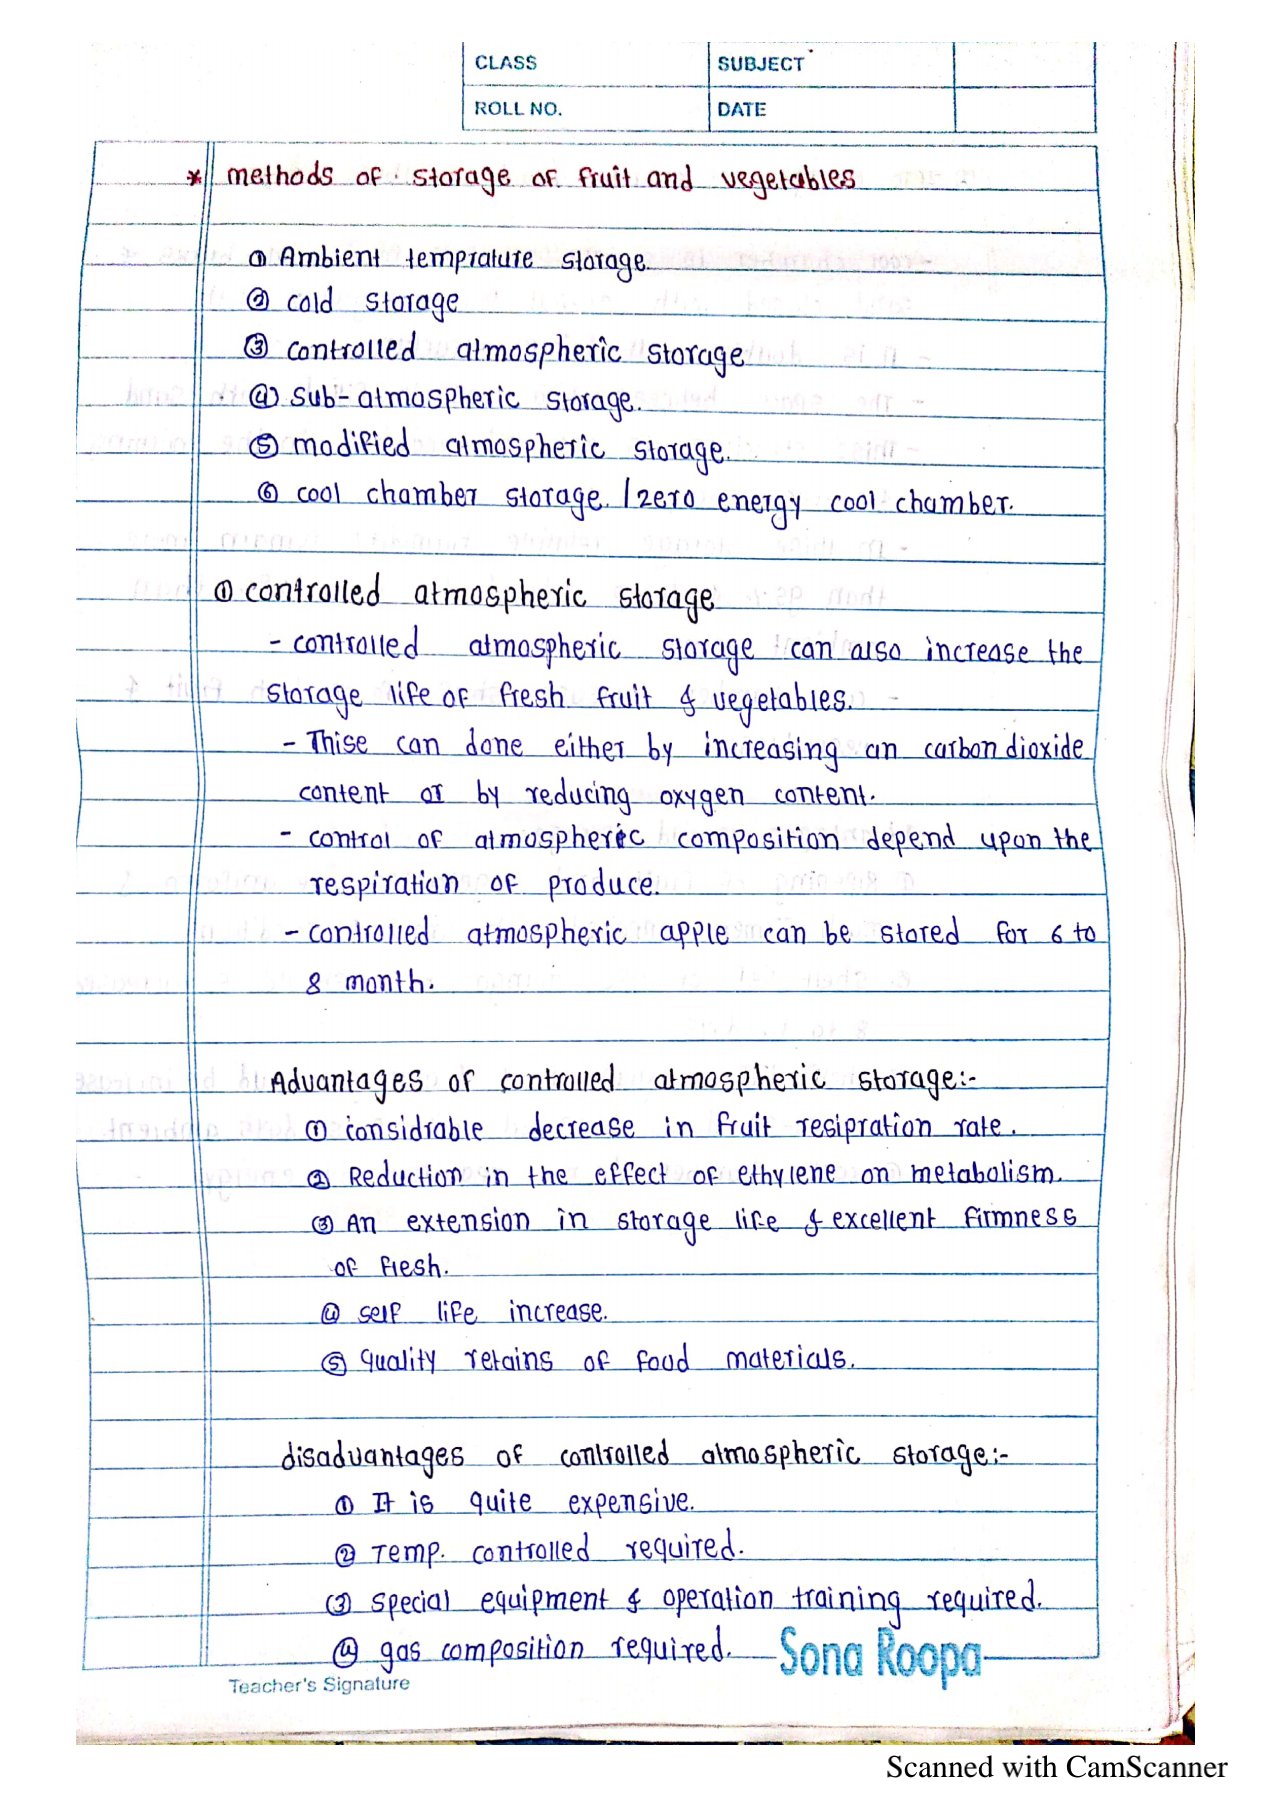 CLASS SUBJECT
ROLL NO. DATE
* methods of storage of fruit and vegetables
① Ambient temprature storage.
② cold storage
③ controlled atmospheric storage
④ Sub-atmospheric storage.
⑤ modified atmospheric storage.
⑥ cool chamber storage. / zero energy cool chamber.
① controlled atmospheric storage
- controlled atmospheric storage can also increase the
storage life of fresh fruit & vegetables.
- Thise can done either by increasing an carbon dioxide
content or by reducing oxygen content.
- control of atmospheric composition depend upon the
respiration of produce.
- controlled atmospheric apple can be stored for 6 to
8 month.
Advantages of controlled atmospheric storage:-
① considrable decrease in fruit resipration rate.
② Reduction in the effect of ethylene on metabolism.
③ An extension in storage life & excellent firmness
of flesh.
④ self life increase.
⑤ quality retains of food materials.
disadvantages of controlled atmospheric storage:-
① It is quite expensive.
② Temp. controlled required.
③ special equipment & operation training required.
④ gas composition required.
Sona Roopa
Teacher's Signature
Scanned with CamScanner